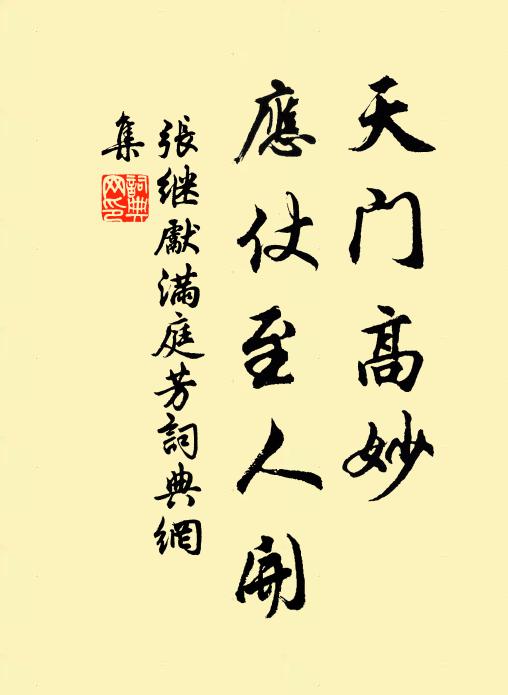 天门高妙
應仗至人開
張继獻滿庭芳詞典網
集
詞典
网印